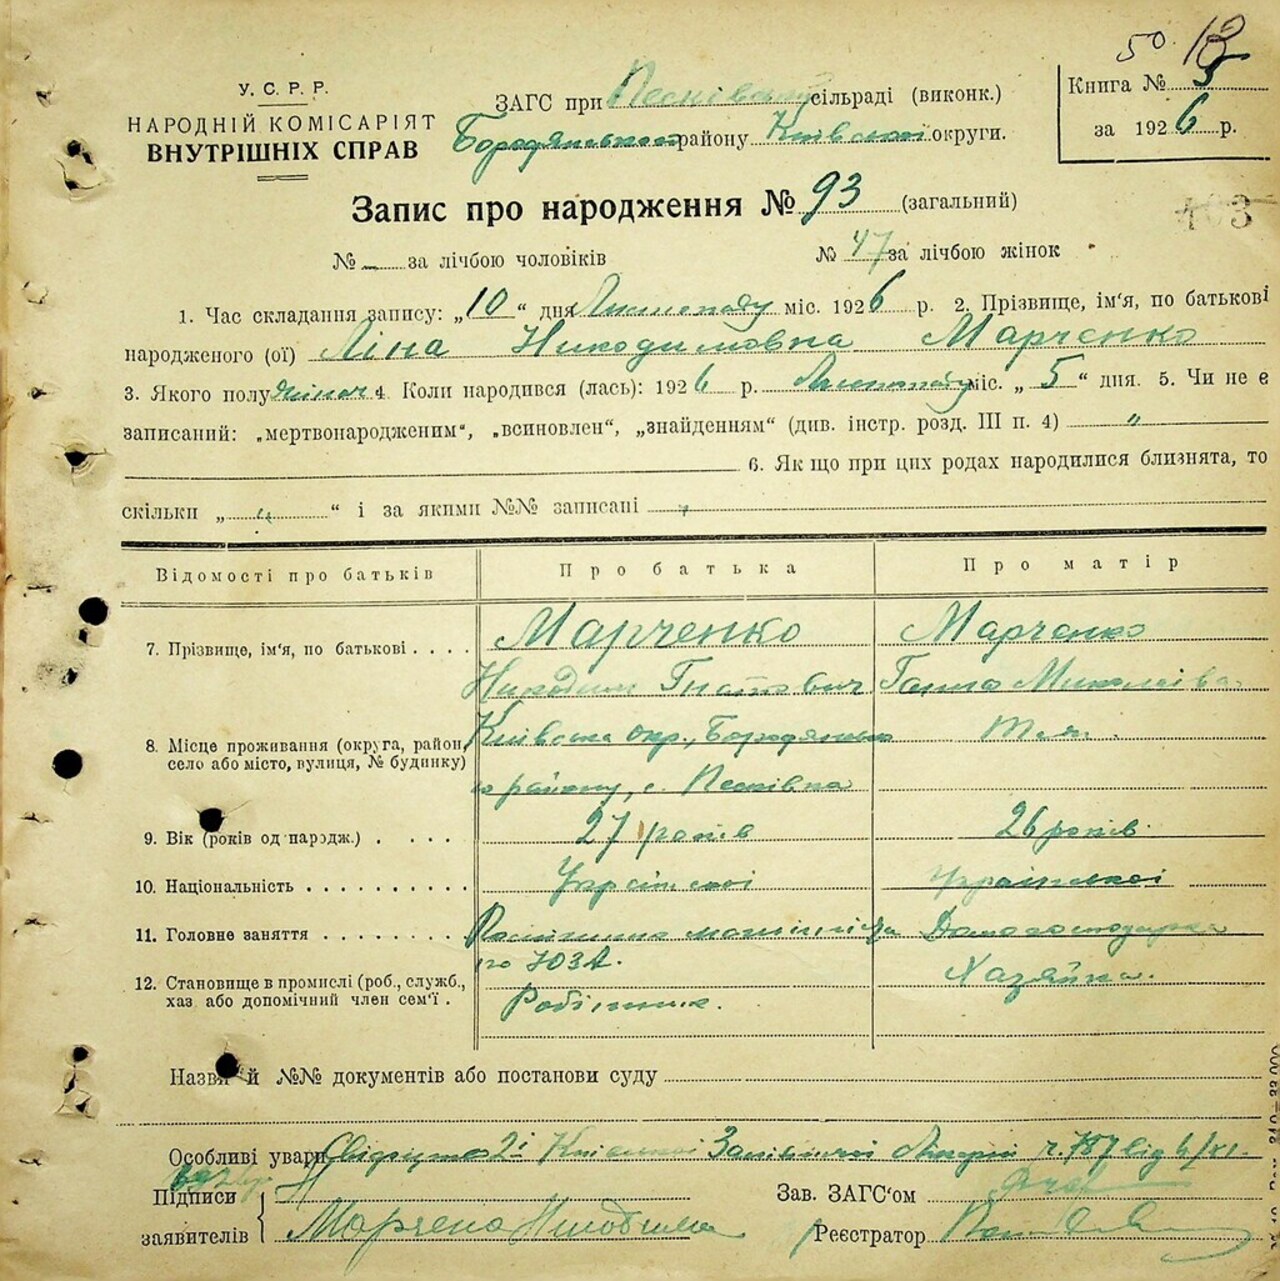 50
У. С. Р. Р.
НАРОДНІЙ КОМІСАРІЯТ
ВНУТРІШНІХ СПРАВ
ЗАГС при сільраді (виконк.)
району Київської округи.
Книга № 5
за 1926 р.
Запис про народження № 93 (загальний)
403
№ за лічбою чоловіків
№ 47 за лічбою жінок
1. Час складання запису: „10“ дня Листопаду міс. 1926 р. 2. Прізвище, ім'я, по батькові
народженого (ої) Ліна Никодимовна Марченко
3. Якого полу жіноч 4. Коли народився (лась): 1926 р. Листопаду міс. „5“ дня. 5. Чи не є
записаний: „мертвонародженим“, „всиновлен“, „знайденням“ (див. інстр. розд. III п. 4) "
6. Як що при цих родах народилися близнята, то
скільки „ " “ і за якими №№ записані
Відомості про батьків
Про батька
Про матір
7. Прізвище, ім'я, по батькові . . . .
Марченко
Никодим Гнатович
Марченко
Ганна Миколаівна
8. Місце проживання (округа, район,
село або місто, вулиця, № будинку)
Київська окр., Бородянсько
го району, с. Песківка
9. Вік (років од народж.) . . . .
27 років
26 років
10. Національність . . . . . . . . . .
Української
Української
11. Головне заняття . . . . . . . .
Домогосподарка
12. Становище в промислі (роб., служб.,
хаз або допомічний член сем'ї .
Робітник.
Хазяйка.
Назви й №№ документів або постанови суду
Особливі уваги 2ї ч. 787 від 6/XI.
Підписи
заявителів
Марченко Никодим
Зав. ЗАГС'ом
Реєстратор